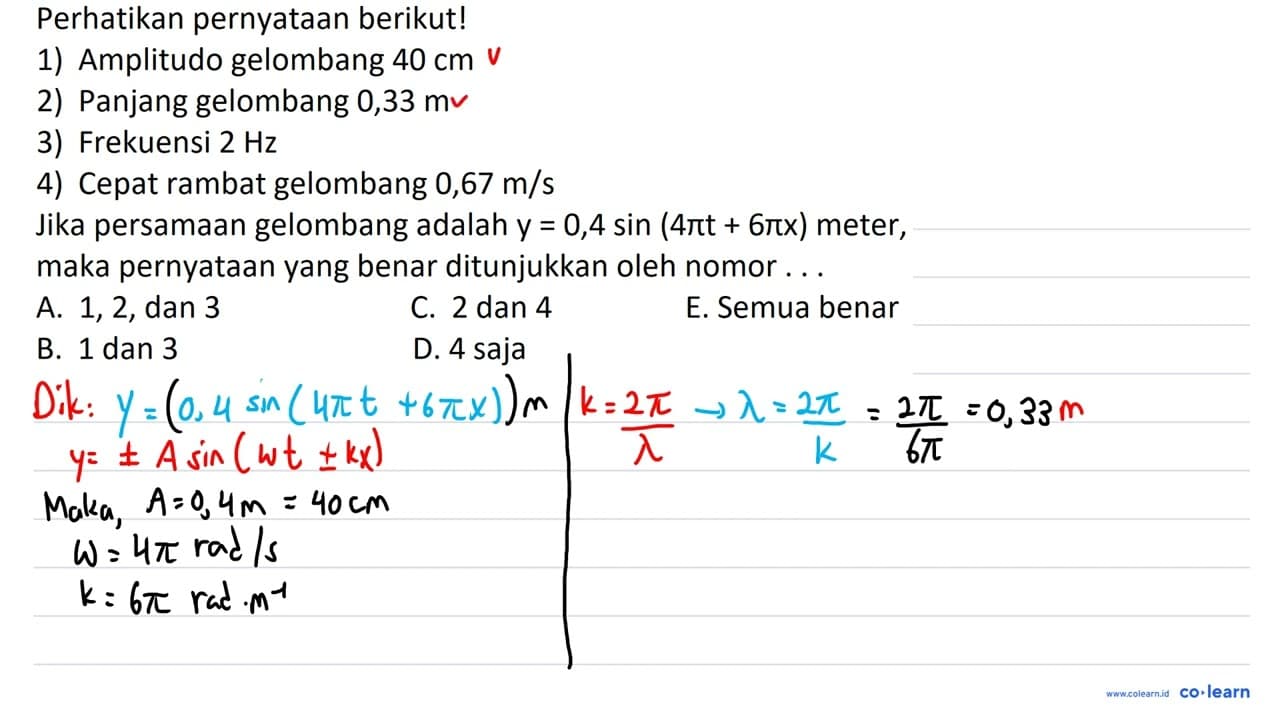 Perhatikan pernyataan berikut!
1) Amplitudo gelombang 40 cm ✓
2) Panjang gelombang 0,33 m✓
3) Frekuensi 2 Hz
4) Cepat rambat gelombang 0,67 m/s
Jika persamaan gelombang adalah y = 0,4 sin (4πt + 6πx) meter,
maka pernyataan yang benar ditunjukkan oleh nomor . . .
A. 1, 2, dan 3 C. 2 dan 4 E. Semua benar
B. 1 dan 3 D. 4 saja
Dik: y = (0,4 sin (4πt + 6πx)) m
y = ± A sin (ωt ± kx)
Maka, A = 0,4 m = 40 cm
ω = 4π rad/s
k = 6π rad.m⁻¹
k = 2π/λ → λ = 2π/k = 2π/6π = 0,33 m
www.colearn.id co·learn